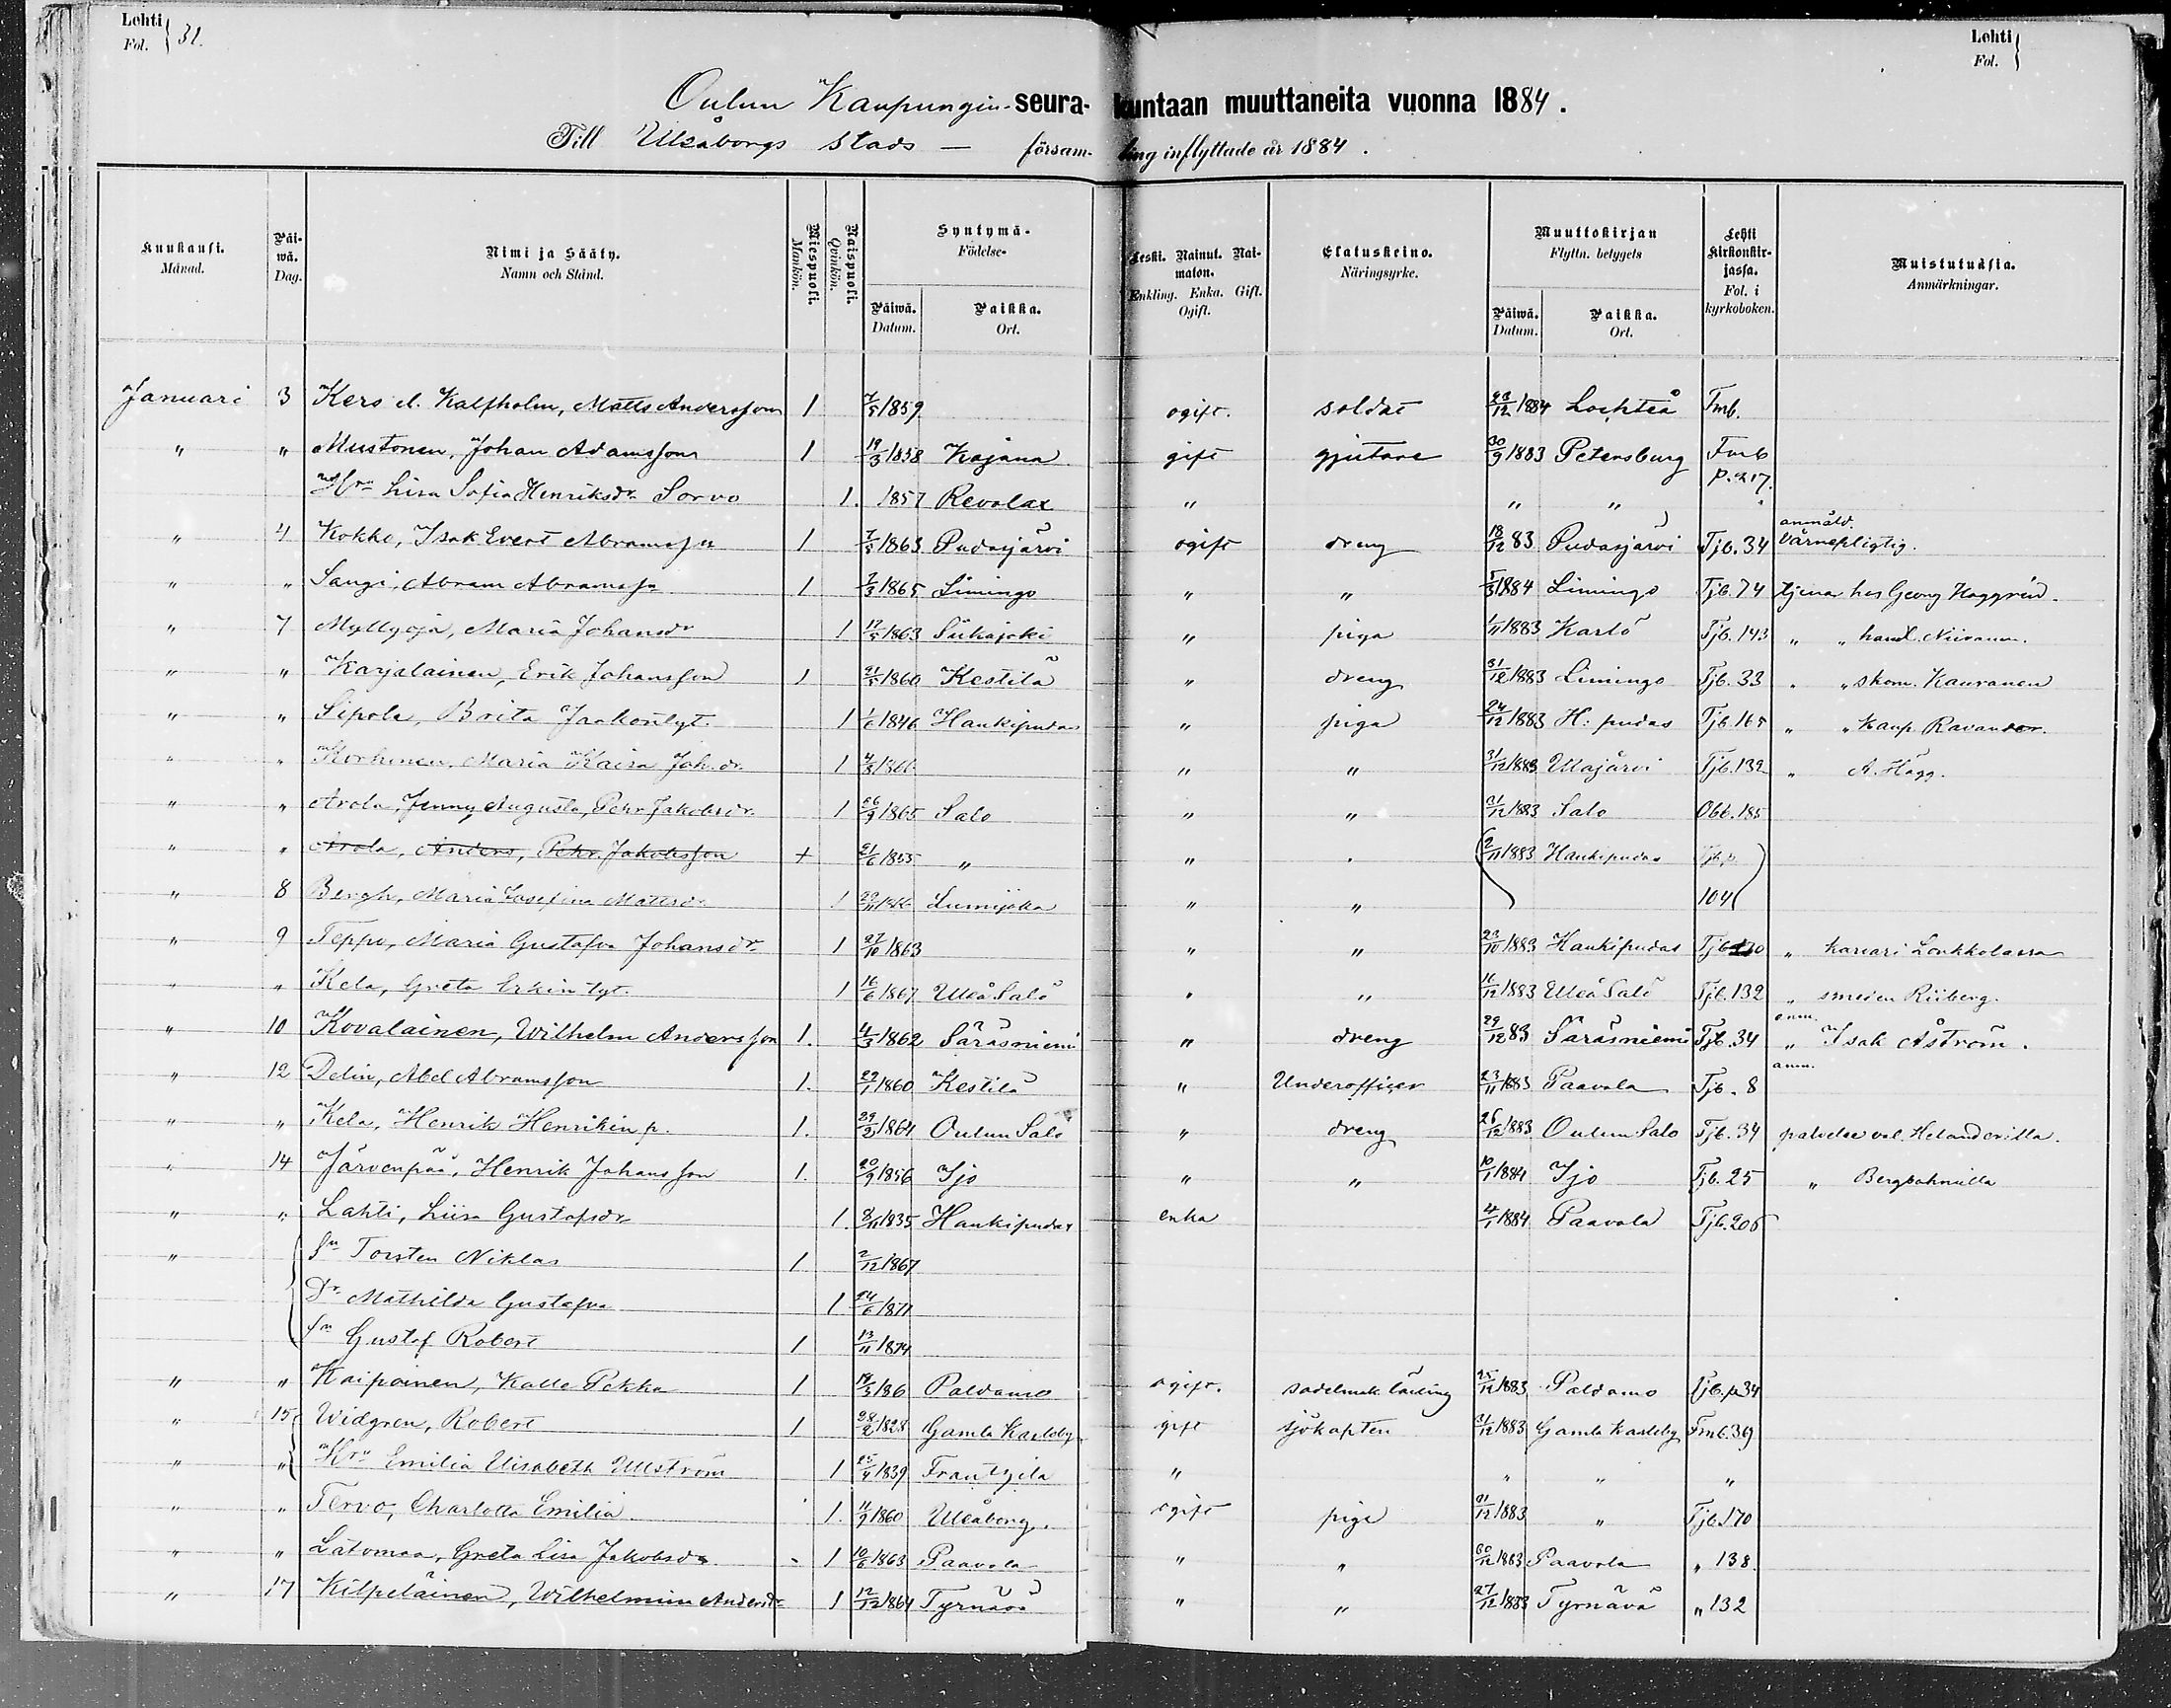 Lehti
Fol. } 31.
Lehti
Fol. }
Oulun Kaupungin-seura-kuntaan muuttaneita vuonna 1884.
Till Uleåborgs Stads — församling inflyttade år 1884.
Kuukausi. Månad.
Päiwä. Dag.
Nimi ja Sääty. Namn och Stånd.
Miespuoli. Mankön.
Naispuoli. Qvinkön.
Syntymä- Födelse-
Päiwä. Datum.
Paikka. Ort.
Leski. Nainut. Naimaton. Enkling. Enka. Gift. Ogift.
Elatuskeino. Näringsyrke.
Muuttokirjan Flyttn. betygets
Päiwä. Datum.
Paikka. Ort.
Lehti Kirkonkirjassa. Fol. i kyrkoboken.
Muistutuksia. Anmärkningar.
Januari 3 Kero d. Kalfholm, Matts Andersson 1 7/5 1859 ogift. soldat 28/12 1884 Lochteå Fmb.
" " Mustonen, Johan Adamsson 1 19/3 1858 Kajana gift gjutare 30/9 1883 Petersburg Fmb p. 217.
Hru Lisa Sofia Henriksdr Sorvo 1. 1857 Revolax " " "
" 4 Kokko, Isak Evert Abramss:n 1 7/5 1863 Pudasjärvi ogift dreng 18/12 83 Pudasjärvi Tjb. 34 anmäld. Värnepligtig.
" " Sangi, Abram Abramss:n 1 7/3 1865 Limingo " " 5/3 1884 Limingo Tjb. 74 tjenar hos Georg Haggrén.
" 7 Myllyoja, Maria Johansdr 1 17/5 1863 Siikajoki " piga 1/11 1883 Karlö Tjb. 143 " " handl. Niiranen.
" " Karjalainen, Erik Johansson 1 21/5 1860 Kestilä " dreng 31/12 1883 Limingo Tjb. 33 " " skom. Kauranen
" " Sipola, Brita Jaakontyt. 1 1/6 1846 Haukipudas " piga 24/12 1883 H:pudas Tjb. 165 " " Kaup. Ravander.
" " Korhonen, Maria Kaisa Joh.dr. 1 4/3 1866 " " 31/12 1883 Utajärvi Tjb. 132 " A. Hägg.
" " Arola Jenny Augusta, Pehr Jakobsdr. 1 26/9 1865 Salo " " 31/12 1883 Salo Obb. 185
" " Arola, Anders, Pehr Jakobsson + 21/6 1855 " " " (2/11 1883 Haukipudas
" 8 Bergh, Maria Josefina Mattsdr 1 Lumijoka " " 104)
" 9 Teppo, Maria Gustafva Johansdr 1 27/10 1863 " " 23/10 1883 Haukipudas Tjb 130 " karvari Loukkolassa
" " Kela, Greta Erkin tyt. 1 16/6 1867 Uleå Salo " " 16/12 1883 Uleå Salo Tjb. 132 " smeden Riiberg.
" 10 Kovalainen, Wilhelm Andersson 1. 4/3 1862 Säräsniemi " dreng 29/12 83 Säräsniemi Tjb. 34 anm. " Isak Åström.
" 12 Delin, Abel Abramsson 1. 22/1 1860 Kestilä " Underofficer 23/11 1883 Paavola Tjb. 8 anm.
" " Kela, Henrik Henrikin p. 1. 29/2 1864 Oulun Salo " dreng 26/12 1883 Oulun Salo Tjb. 34 palvelee val. Helanderilla.
" 14 Järvenpää, Henrik Johansson 1. 20/9 1856 Ijo " " 10/1 1884 Ijo Tjb. 25 " Bergbohmilla
" " Lahti, Liisa Gustafsdr 1. 8/11 1835 Haukipudas enka 4/1 1884 Paavola Tjb. 205
" Sn Torsten Niklas 1 2/12 1867
Dr Mathilda Gustafva 1 24/6 1871
Sn Gustaf Robert 1 13/11 1874
" " Kaipainen, Kalle Pekka 1 19/3 186 Paldamo ogift. sadelmak. lärling 25/12 1883 Paldamo Tjb. p 34
" 15 Widgren, Robert 1 28/2 1828 Gamla Karleby gift sjökapten 31/12 1883 Gamla Karleby Fmb. 39
" " Hru Emilia Elisabeth Ullström 1 25/4 1839 Frantzila " " " "
" " Tervo, Charlotta Emilia 1. 11/9 1860 Uleåborg. ogift piga 31/12 1883 " Tjb. 170
" " Latomaa, Greta Lisa Jakobsdr. 1 10/6 1863 Paavola " " 30/12 1883 Paavola " 138.
" 17 Kilpeläinen, Wilhelmina Andersdr 1 12/12 1864 Tyrnävä " " 27/12 1883 Tyrnävä " 132